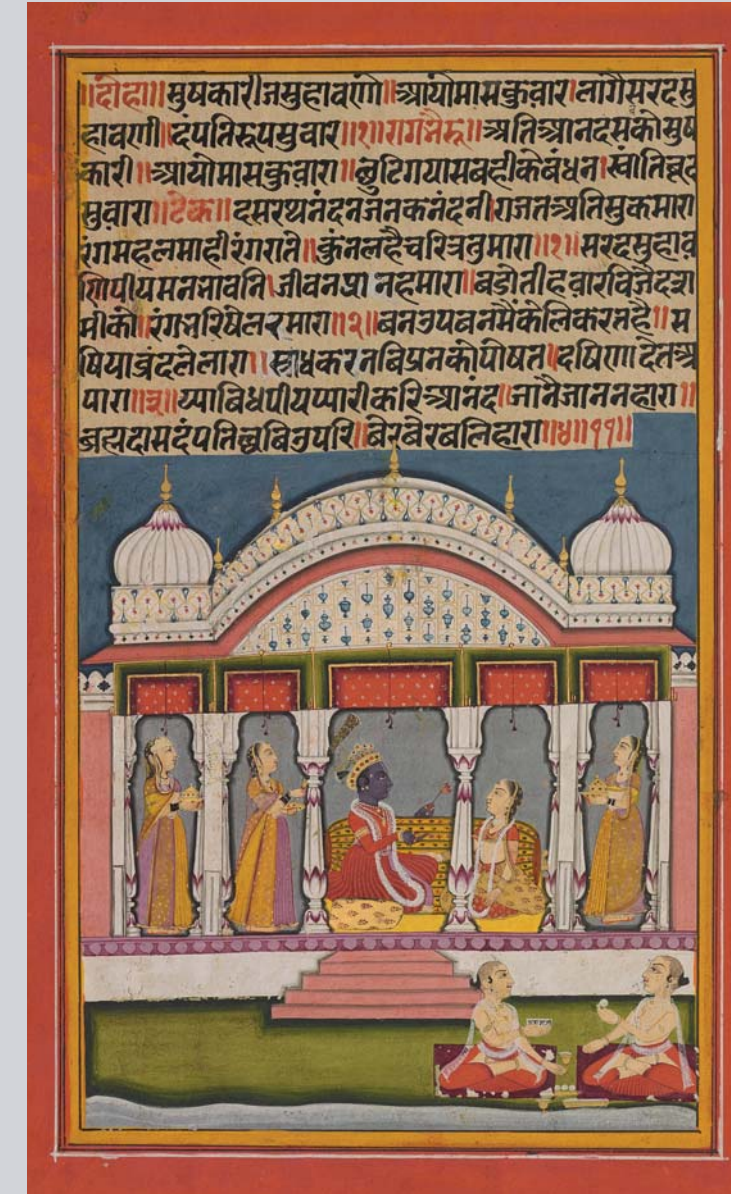 ॥दोहा॥ सुषकारीजसुहावणो॥आयौमासकुवार।लागैसरदसु
हावणी।दंपतिरूपसुवार॥१॥रागभैरू॥अतिआनदसबकोसुष
कारी॥आयौमासकुवारा॥छुटिगयासबहीकेबंधन।स्वांतिबूद
सुवारा॥टेक॥दसरथनंदनजनकनंदनी।राजतअतिसुकमारा
रंगमहलमाहीरंगराते॥कुंनलहैचरित्रतुमारा॥१॥सरदसुहाव
णिपीयमनभावनि।जीवनप्रानहमारा॥बडोतीहवारविजैदस
मीको॥रंगभरिषेल
मारा॥२॥बनउपबनमैंकेलिकरतहै॥स
षिया
करतबिप्रनकोपोषत।दषिणादेतअ
पारा॥३॥य्याबिधपीयप्यारीकरिआनंद॥जानैजाननहारा॥
ब्रह्मदासदंपतिछबिउपरि॥बेरबेरबलिहारा॥४॥११॥